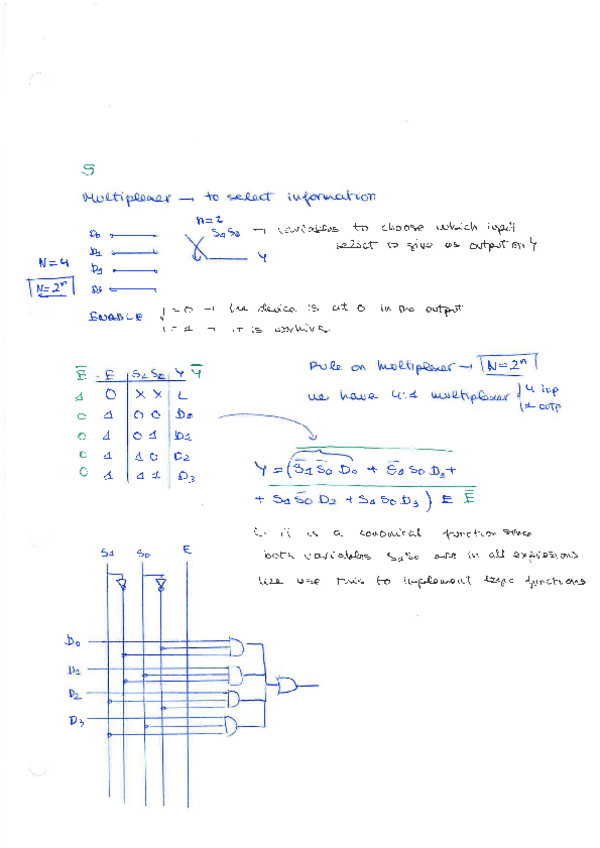 5
Multiplexer → to select information
n=2
D0
S1 S0 → variables to choose which input
D1
select to give as output on Y
N=4
Y
D2
N=2ⁿ
D3
ENABLE
= 0 → the device is at 0 in the output
= 1 → it is working
E̅ E S1 S0 Y Y̅
1 0 X X L
0 1 0 0 D0
0 1 0 1 D1
0 1 1 0 D2
0 1 1 1 D3
Rule on multiplexer → N=2ⁿ
we have 4:1 multiplexer
4 inp
1 outp
Y = (S̅1 S̅0 D0 + S̅1 S0 D1 +
+ S1 S̅0 D2 + S1 S0 D3) E E̅
it is a canonical function since
both variables S1 S0 are in all expressions
We use this to implement logic functions
S1 S0 E
D0
D1
D2
D3